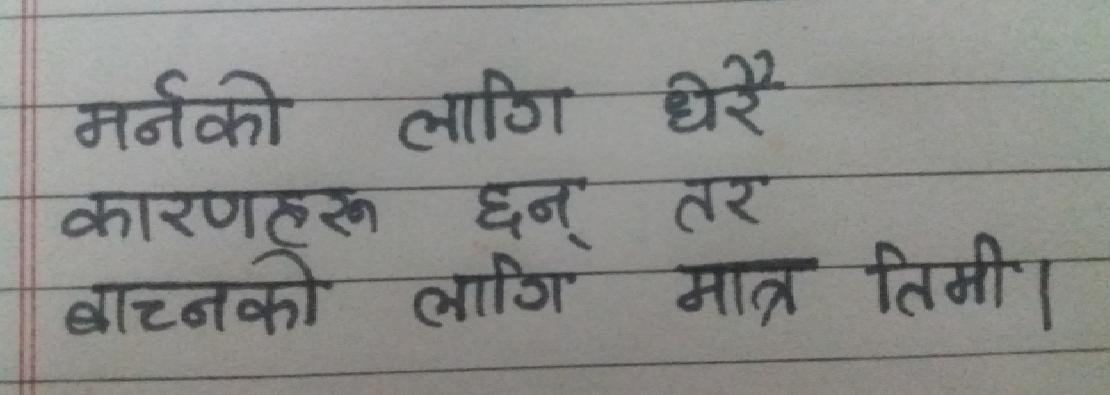 मर्नको लागि धेरै
कारणहरू छन् तर
बाच्नको लागि मात्र तिमी।